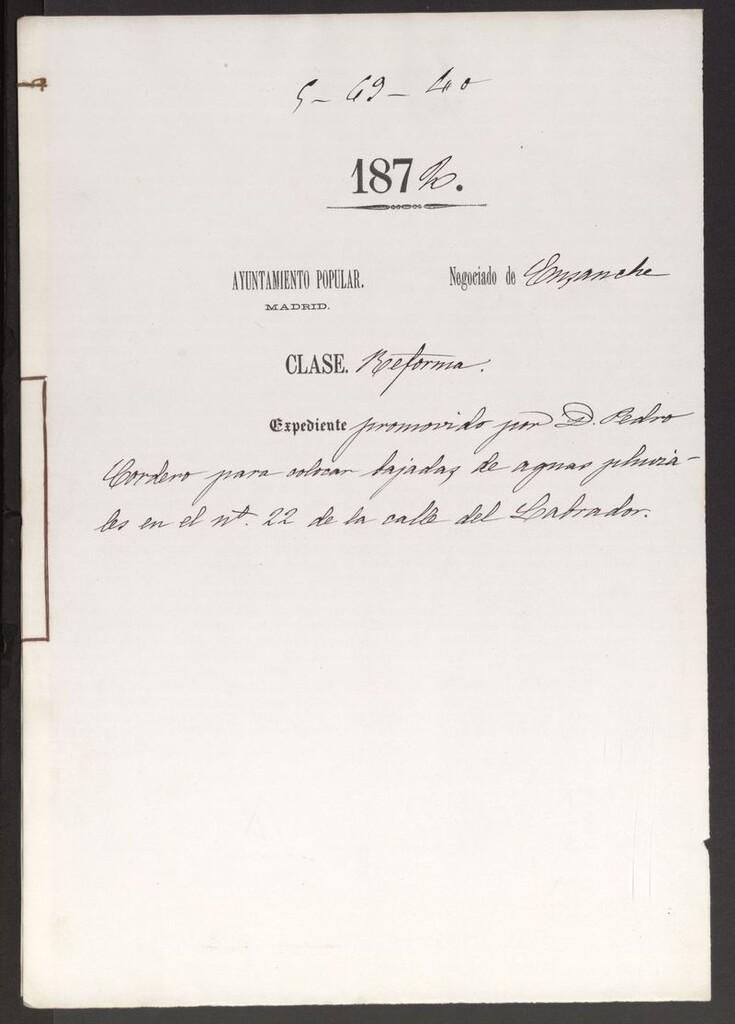 5-69-40
1872.
AYUNTAMIENTO POPULAR. Negociado de Ensanche
MADRID.
CLASE. Reforma.
Expediente promovido por D. Pedro
Cordero para colocar bajadas de aguas pluvia-
les en el nº. 22 de la calle del Labrador.